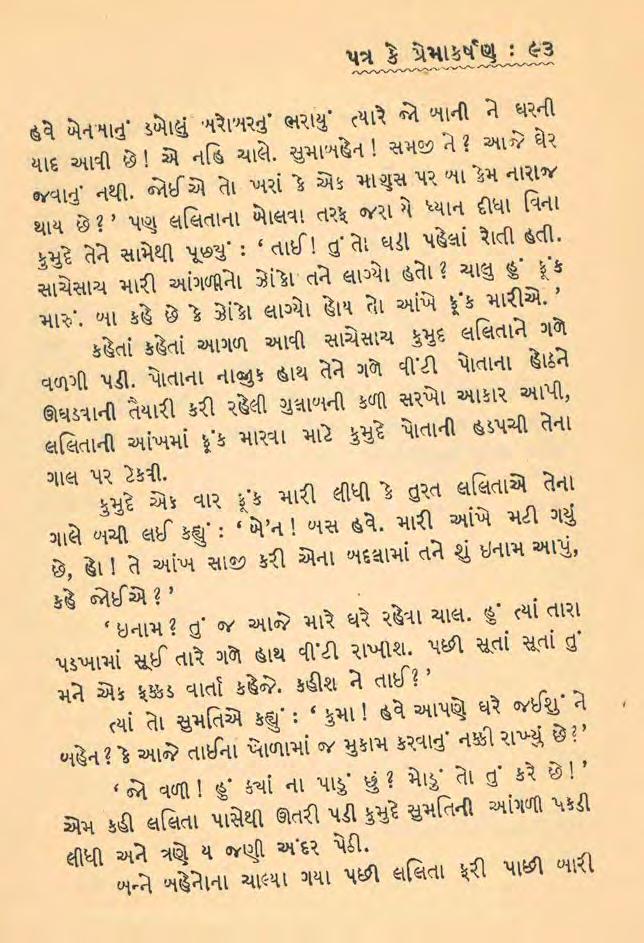 પત્ર કે પ્રેમાકર્ષણ : ૯૩
હવે બેનબાનું ડબોલું બરોબરનું ભરાયું ત્યારે જો બાની ને ઘરની
યાદ આવી છે! એ નહિ ચાલે. સુમાબહેન! સમજી ને? આજે ઘેર
જવાનું નથી. જોઈએ તો ખરાં કે એક માણસ પર બા કેમ નારાજ
થાય છે?’ પણ લલિતાના બોલવા તરફ જરા યે ધ્યાન દીધા વિના
કુમુદે તેને સામેથી પૂછ્યું : ‘તાઈ! તું તો ઘડી પહેલાં રોતી હતી.
સાચેસાચ મારી આંગળીનો ઝોંકો તને લાગ્યો હતો? ચાલ હું ફૂંક
મારું. બા કહે છે કે ઝોંકો લાગ્યો હોય તો આંખે ફૂંક મારીએ.’
કહેતાં કહેતાં આગળ આવી સાચેસાચ કુમુદ લલિતાને ગળે
વળગી પડી. પોતાના નાજુક હાથ તેને ગળે વીંટી પોતાના હોઠને
ઊઘડવાની તૈયારી કરી રહેલી ગુલાબની કળી સરખો આકાર આપી,
લલિતાની આંખમાં ફૂંક મારવા માટે કુમુદે પોતાની હડપચી તેના
ગાલ પર ટેકવી.
કુમુદે એક વાર ફૂંક મારી લીધી કે તુરત લલિતાએ તેના
ગાલે બચી લઈ કહ્યું : ‘બે’ન! બસ હવે. મારી આંખે મટી ગયું
છે, હો! તે આંખ સાજી કરી એના બદલામાં તને શું ઇનામ આપું,
કહે જોઈએ?’
‘ઇનામ? તું જ આજે મારે ઘરે રહેવા ચાલ. હું ત્યાં તારા
પડખામાં સૂઈ તારે ગળે હાથ વીંટી રાખીશ. પછી સૂતાં સૂતાં તું
મને એક ફક્કડ વાર્તા કહેજે. કહીશ ને તાઈ?’
ત્યાં તો સુમતિએ કહ્યું : ‘કુમા! હવે આપણે ઘરે જઈશું ને
બહેન? કે આજે તાઈના ખોળામાં જ મુકામ કરવાનું નક્કી રાખ્યું છે?’
‘જો વળી! હું ક્યાં ના પાડું છું? મોડું તો તું કરે છે!’
એમ કહી લલિતા પાસેથી ઊતરી પડી કુમુદે સુમતિની આંગળી પકડી
લીધી અને ત્રણે ય જણી અંદર પેઠી.
બન્ને બહેનોના ચાલ્યા ગયા પછી લલિતા ફરી પાછી બારી